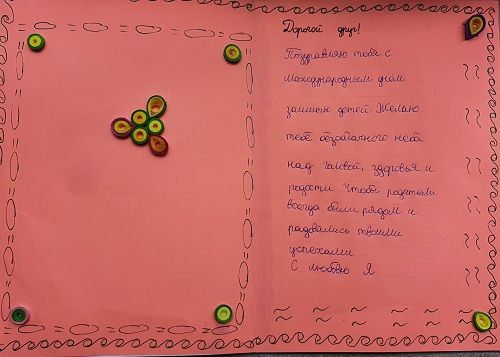 Дорогой друг!
Поздравляю тебя с
международным днём
защиты детей. Желаю
тебе безоблачного неба
над головой, здоровья и
радости чтобы родители
всегда были рядом и
радовались твоими
успехами
С любовью Я